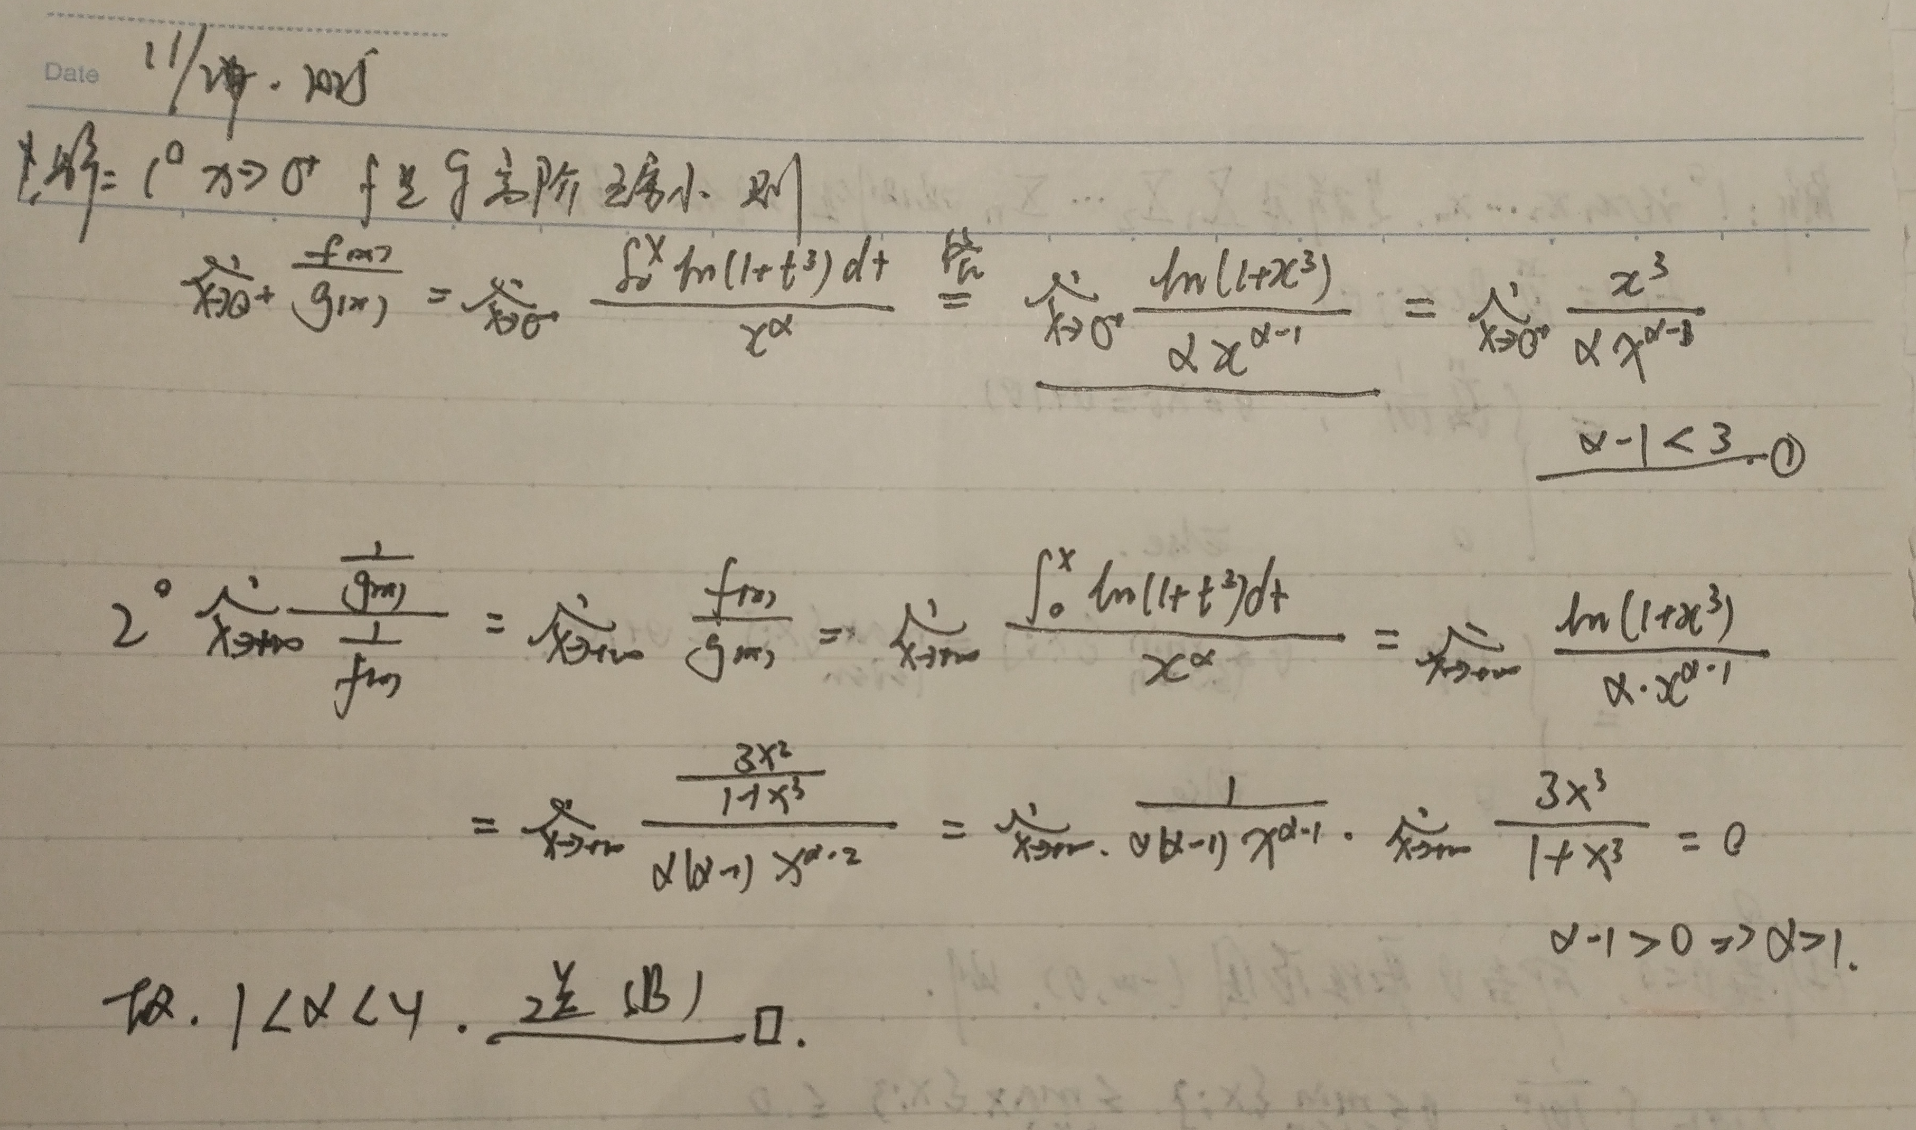 Date 11/24. 2025
解: 1° x→0⁺ f是g高阶无穷小 则
lim x→0⁺ f(x)/g(x) = lim x→0⁺ ∫₀ˣ ln(1+t³)dt / x^α = lim x→0⁺ ln(1+x³) / αx^(α-1) = lim x→0⁺ x³ / αx^(α-1)
α-1<3. ①
2° lim x→+∞ (1/g(x)) / (1/f(x)) = lim x→+∞ f(x)/g(x) = lim x→+∞ ∫₀ˣ ln(1+t³)dt / x^α = lim x→+∞ ln(1+x³) / α·x^(α-1)
= lim x→+∞ (3x²/(1+x³)) / α(α-1)x^(α-2) = lim x→+∞. 1 / α(α-1)x^(α-1) · lim x→+∞ 3x³/(1+x³) = 0
α-1>0 => α>1.
故. 1<α<4. 选 (B) □.